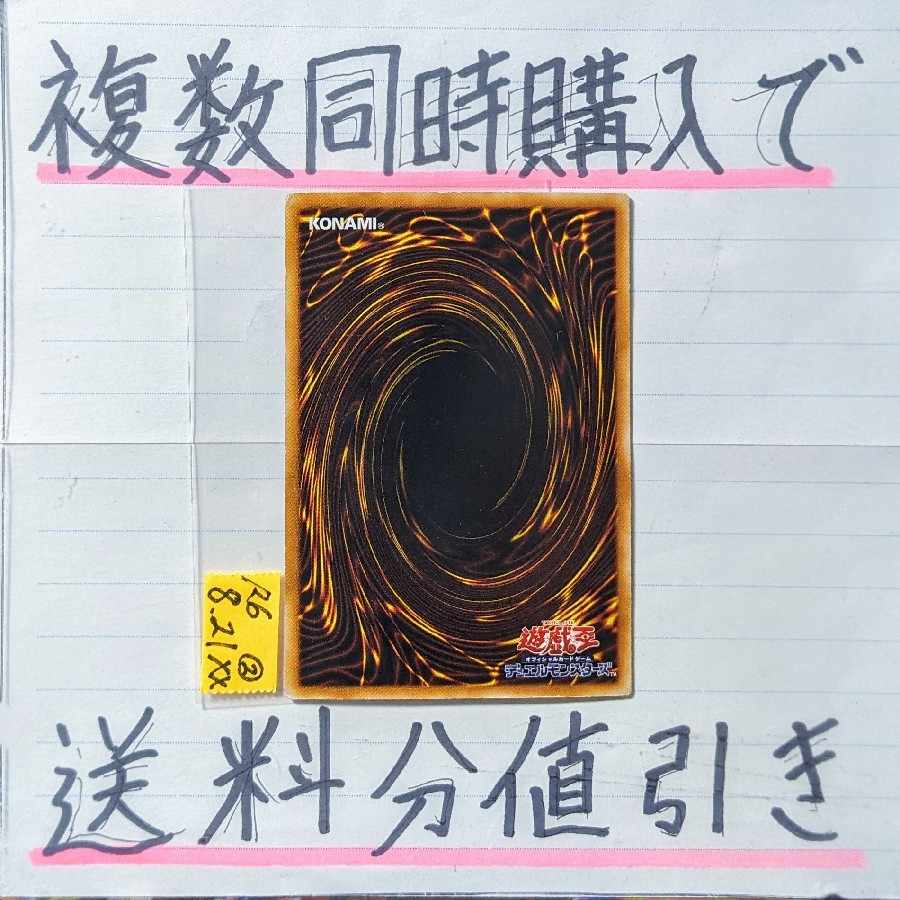 複数同時購入で
KONAMI®
遊戯王
オフィシャルカードゲーム
デュエルモンスターズ™
②
8.21XX
送料分値引き